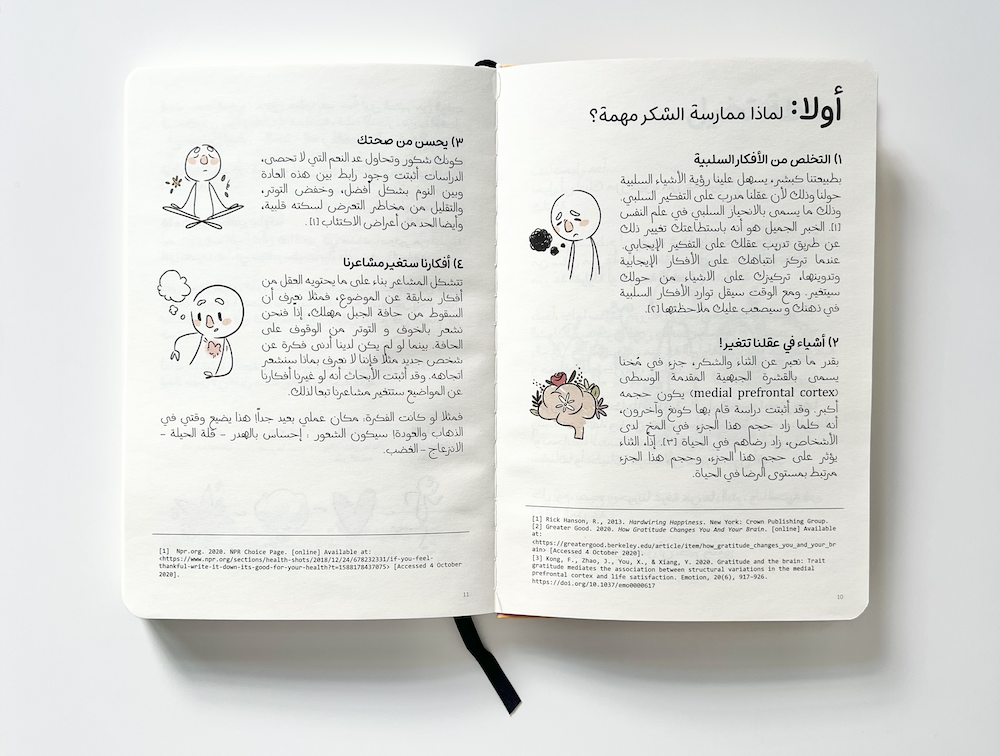 أولا: لماذا ممارسة الشكر مهمة؟
١) التخلص من الأفكار السلبية
بطبيعتنا كبشر، يسهل علينا رؤية الأشياء السلبية
حولنا وذلك لأن عقلنا مدرب على التفكير السلبي.
وذلك ما يسمى بالانحياز السلبي في علم النفس
[١]. الخبر الجميل هو أنه باستطاعتك تغيير ذلك
عن طريق تدريب عقلك على التفكير الإيجابي.
عندما تركز انتباهك على الأفكار الإيجابية
وتدوينها، تركيزك على الاشياء من حولك
سيتغير. ومع الوقت سيقل توارد الأفكار السلبية
في ذهنك و سيصعب عليك ملاحظتها [٢].
٢) أشياء في عقلنا تتغير!
بقدر ما نعبر عن الثناء والشكر، جزء في مُخنا
يسمى بالقشرة الجبهية المقدمة الوسطى
(medial prefrontal cortex) يكون حجمه
أكبر. وقد أثبتت دراسة قام بها كونغ وآخرون،
أنه كلما زاد حجم هذا الجزء في المخ لدى
الأشخاص، زاد رضاهم في الحياة [٣]. إذاً، الثناء
يؤثر على حجم هذا الجزء، وحجم هذا الجزء
مرتبط بمستوى الرضا في الحياة.
[1] Rick Hanson, R., 2013. Hardwiring Happiness. New York: Crown Publishing Group.
[2] Greater Good. 2020. How Gratitude Changes You And Your Brain. [online] Available
at:
<https://greatergood.berkeley.edu/article/item/how_gratitude_changes_you_and_your_br
ain> [Accessed 4 October 2020].
[3] Kong, F., Zhao, J., You, X., & Xiang, Y. 2020. Gratitude and the brain: Trait
gratitude mediates the association between structural variations in the medial
prefrontal cortex and life satisfaction. Emotion, 20(6), 917–926.
https://doi.org/10.1037/emo0000617
10
٣) يحسن من صحتك
كونك شكور وتحاول عد النعم التي لا تحصى،
الدراسات أثبتت وجود رابط بين هذه العادة
وبين النوم بشكل أفضل، وخفض التوتر،
والتقليل من مخاطر التعرض لسكته قلبية،
وأيضا الحد من أعراض الاكتئاب [١].
٤) أفكارنا ستغير مشاعرنا
تتشكل المشاعر بناء على ما يحتويه العقل من
أفكار سابقة عن الموضوع، فمثلا نعرف أن
السقوط من حافة الجبل مهلك، إذاً فنحن
نشعر بالخوف و التوتر من الوقوف على
الحافة. بينما لو لم يكن لدينا أدنى فكرة عن
شخص جديد مثلًا فإننا لا نعرف بماذا سنشعر
اتجاهه. وقد أثبتت الأبحاث أنه لو غيرنا أفكارنا
عن المواضيع ستتغير مشاعرنا تبعا لذلك.
فمثلا لو كانت الفكرة: مكان عملي بعيد جداً! هذا يضيع وقتي في
الذهاب والعودة! سيكون الشعور : إحساس بالهدر - قلة الحيلة -
الانزعاج - الغضب.
[1] Npr.org. 2020. NPR Choice Page. [online] Available at:
<https://www.npr.org/sections/health-shots/2018/12/24/678232331/if-you-feel-
thankful-write-it-down-its-good-for-your-health?t=1588178437075> [Accessed 4 October
2020].
11